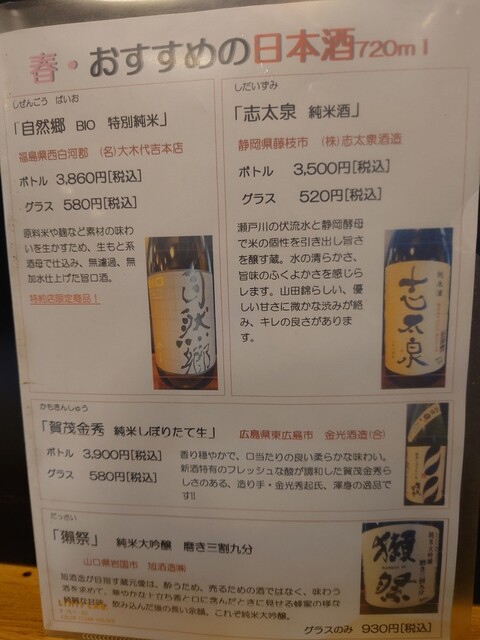 春・おすすめの日本酒720ml
しぜんごう ばいお
「自然郷 BIO 特別純米」
福島県西白河郡 (名)大木代吉本店
ボトル 3,860円[税込]
グラス 580円[税込]
原料米や麹など素材の味わ
いを生かすため、生もと系
酒母で仕込み、無濾過、無
加水仕上げた旨口酒。
特約店限定商品！
自然郷
しだいずみ
「志太泉 純米酒」
静岡県藤枝市 (株)志太泉酒造
ボトル 3,500円[税込]
グラス 520円[税込]
瀬戸川の伏流水と静岡酵母
で米の個性を引き出し旨さ
を醸す蔵。水の清らかさ、
旨味のふくよかさを感じら
れします。山田錦らしい、優
しい甘さに微かな渋みが絡
み、キレの良さがありま
す。
純米酒
志太泉
かもきんしゅう
「賀茂金秀 純米しぼりたて生」 広島県東広島市 金光酒造(合)
ボトル 3,900円[税込]
グラス 580円[税込]
香り穏やかで、口当たりの良い柔らかな味わい。
新酒特有のフレッシュな酸が調和した賀茂金秀ら
しさのある、造り手・金光秀起氏、渾身の逸品で
す!!
だっさい
「獺祭」 純米大吟醸 磨き三割九分
山口県岩国市 旭酒造㈱
旭酒造が目指す蔵元像は、酔うため、売るための酒ではなく、味わう
酒を求めて、華やかな上立ち香と口に含んだときに見せる蜂蜜の様な
綺麗な甘味、飲み込んだ後の長い余韻。これぞ純米大吟醸。
獺祭
グラスのみ 930円[税込]